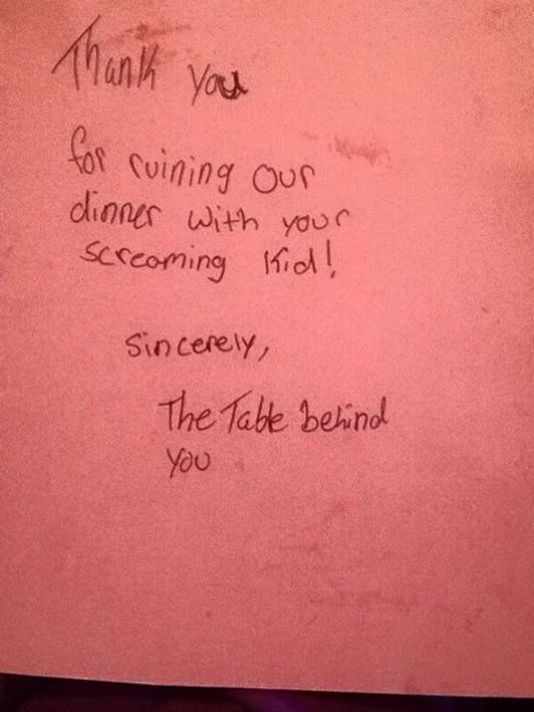 Thank you
for ruining our
dinner with your
screaming kid!
Sincerely,
The Table behind
You